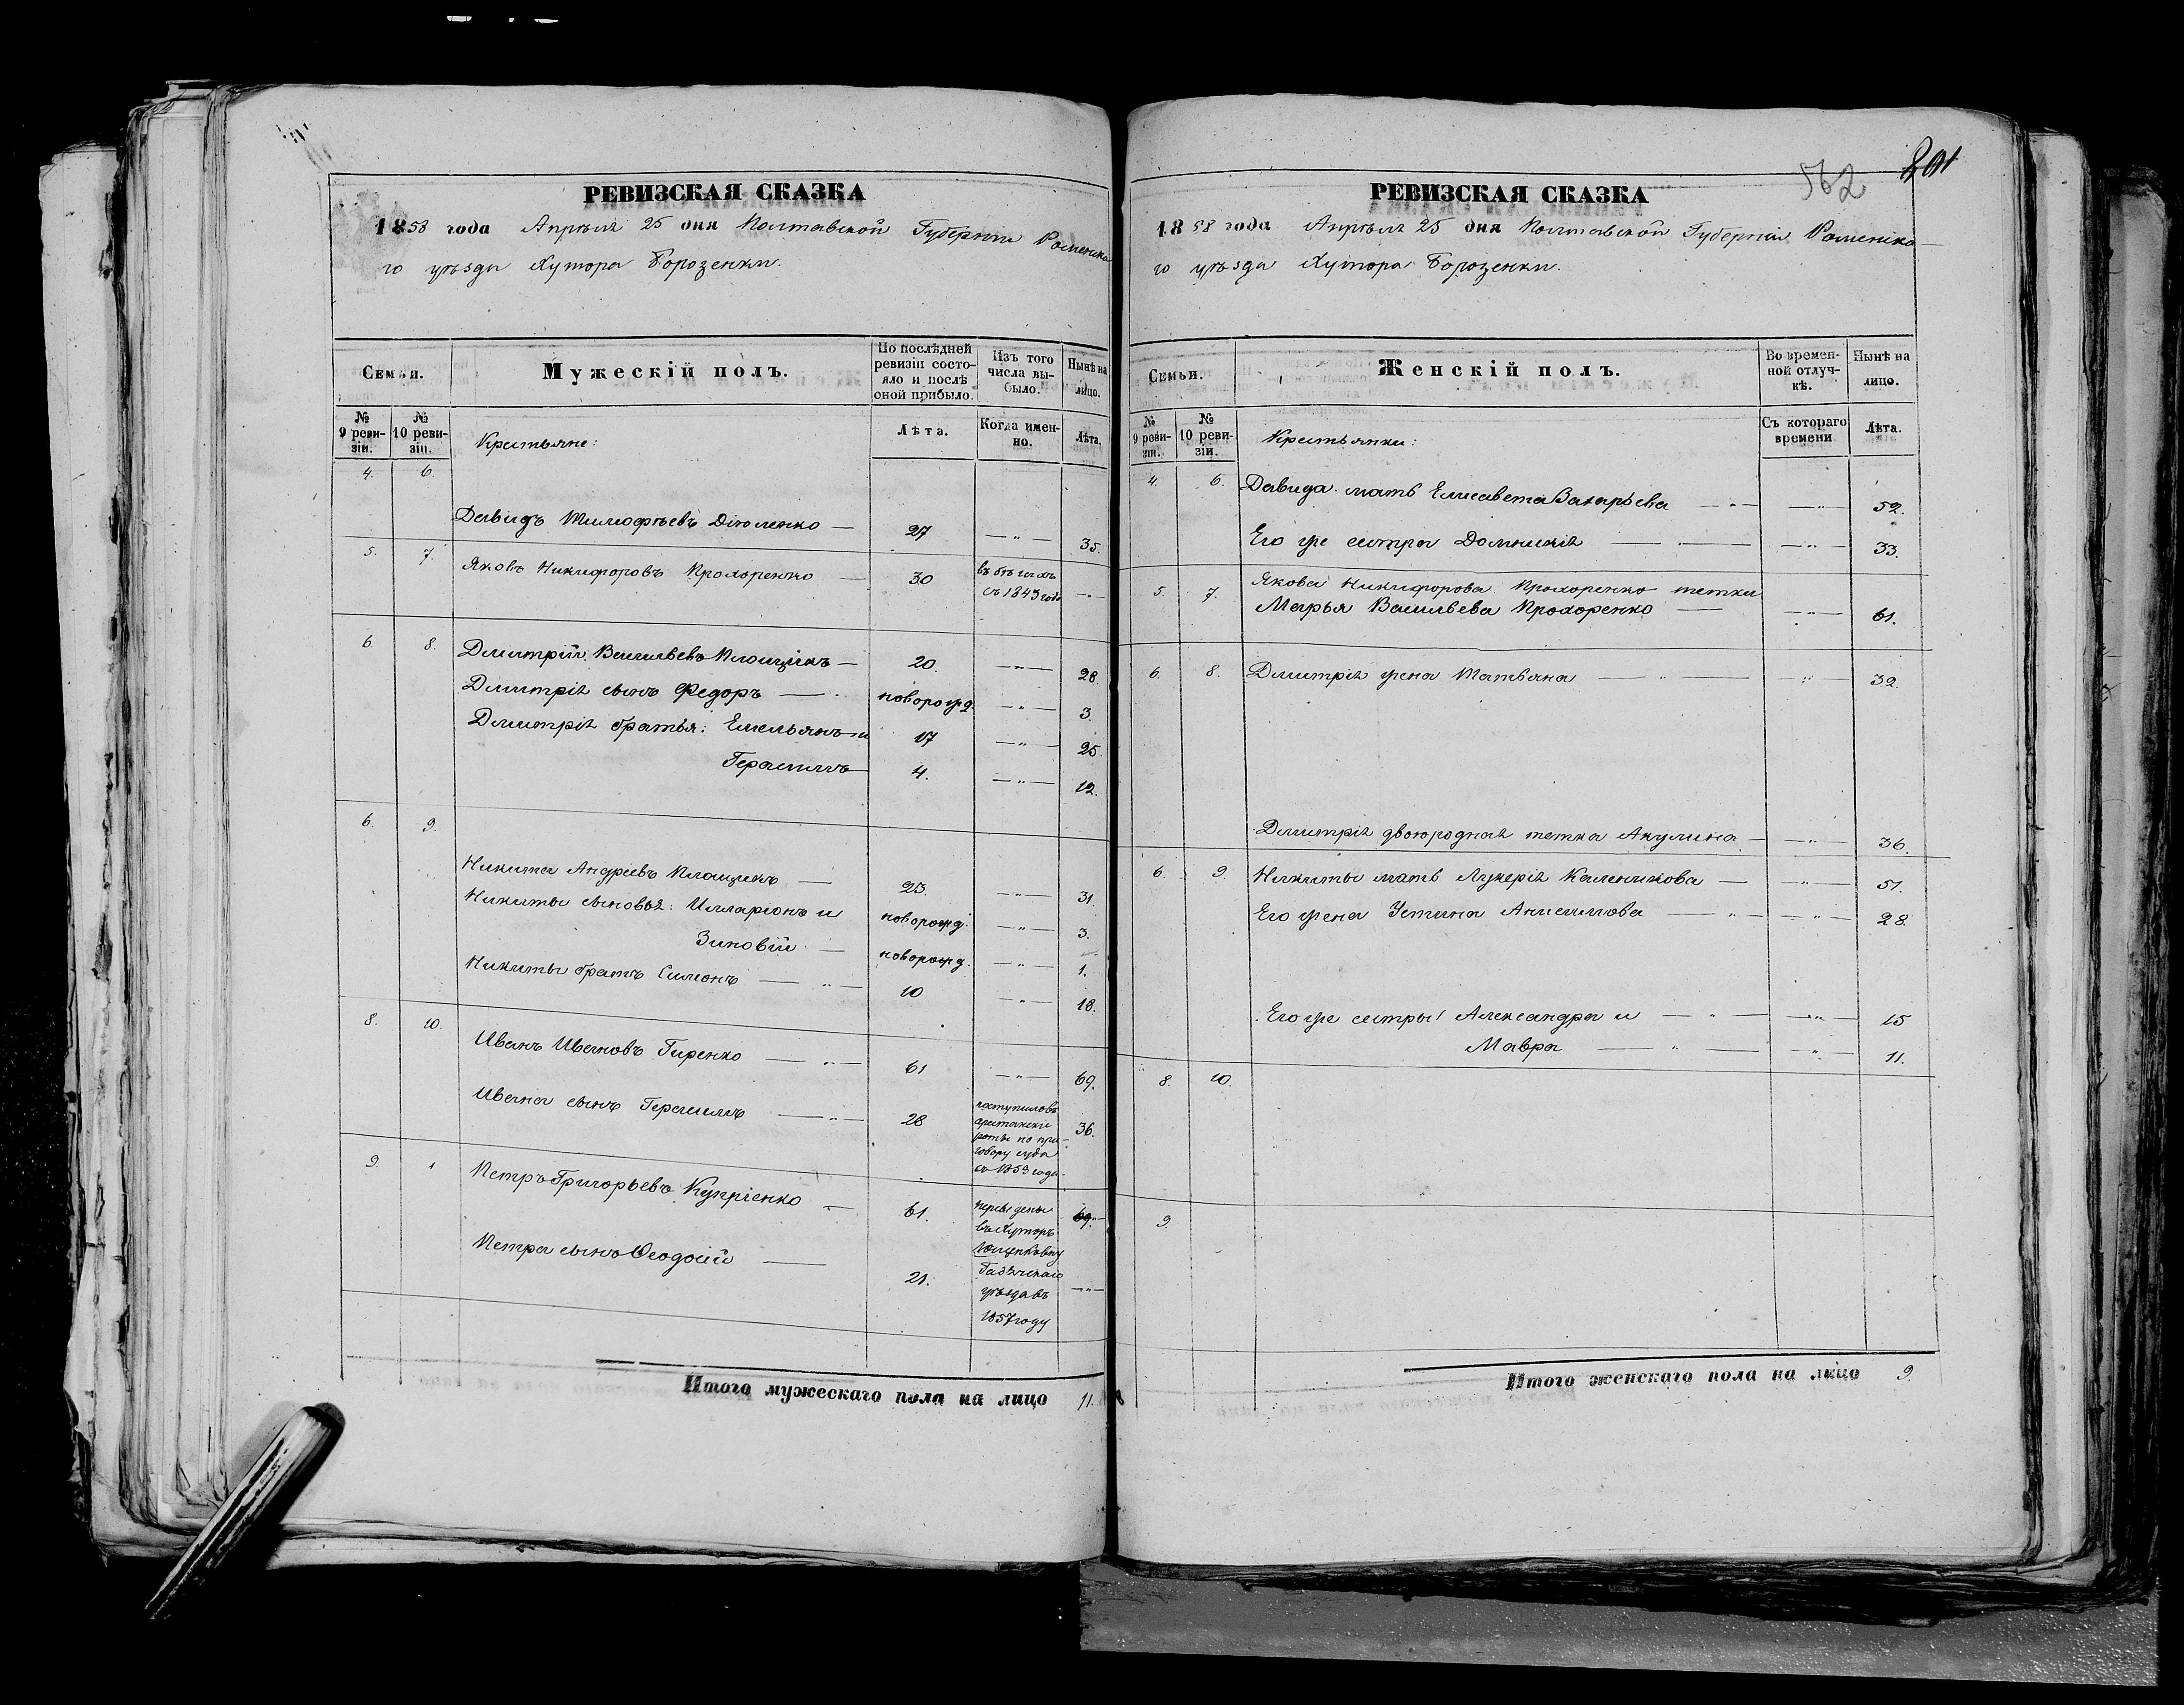 РЕВИЗСКАЯ СКАЗКА
1858 года Апреля 25 дня Полтавской Губернии Роменска
го уѣзда Хутора Борозенки.
Семьи.
Мужескій полъ.
По послѣдней ревизіи состояло и послѣ оной прибыло.
Изъ того числа выбыло.
Нынѣ на лицо.
№ 9 ревизіи.
№ 10 ревизіи.
Крестьяне:
Лѣта.
Когда именно.
Лѣта.
4. 6.
Давидъ Тимофѣевъ — 27 — " — 35.
5. 7.
Яковъ Никифоровъ Прохоренко — 30 въ бѣгахъ съ 1849 года — " —
6. 8.
Дмитрій Васильевъ Плащикъ — 20. — " — 28.
Дмитрія сынъ Федоръ — новорожд. — " — 3.
Дмитрія братья: Емельянъ и 17 — " — 25.
Герасимъ 4. — " — 12.
6. 9.
Никита Андреевъ Плащикъ — 23 — " — 31.
Никиты сыновья: Илларіонъ и новорожд. — " — 3.
Зиновій — новорожд. — " — 1.
Никиты братъ Симонъ — " — 10 — " — 18.
8. 10.
Иванъ Ивановъ Гиренко — " — 61 — " — 69.
Ивана сынъ Герасимъ — " — 28 поступилъ въ арестански роты по приговору суда съ 1853 года. 36.
9. 1
Петръ Григорьевъ Купріенко — 61. переведены въ Хуторъ
69.
Петра сынъ Ѳеодосій — 21. Гадячскаго уѣзда въ 1857 году — " —
Итого мужескаго пола на лицо 11.
562
201
РЕВИЗСКАЯ СКАЗКА
1858 года Апреля 25 дня Полтавской Губерніи Роменска—
го уѣзда Хутора Борозенки.
Семьи.
Женскій полъ.
Во временной отлучкѣ.
Нынѣ на лицо.
№ 9 ревизіи.
№ 10 ревизіи.
Крестьянки:
Съ котораго времени
Лѣта.
4. 6.
Давида мать Елисавета Захарьева — " — — " — 52.
Его же сестра Домникія — " — 33.
5. 7.
Якова Никифорова Прохоренко тетка
Марья Васильева Прохоренко — — " — 61.
6. 8.
Дмитрія жена Татьяна — " — " — 32.
Дмитрія двоюродная тетка Акулина — — " — 36.
6. 9
Никиты мать Лукерія Каленикова — — " — 51.
Его жена Устина Анисимова — " — — " — 28.
Его же сестры: Александра и — " — — " — 15
Мавра — " — — " — 11.
8. 10.
9.
Итого женскаго пола на лицо 9.